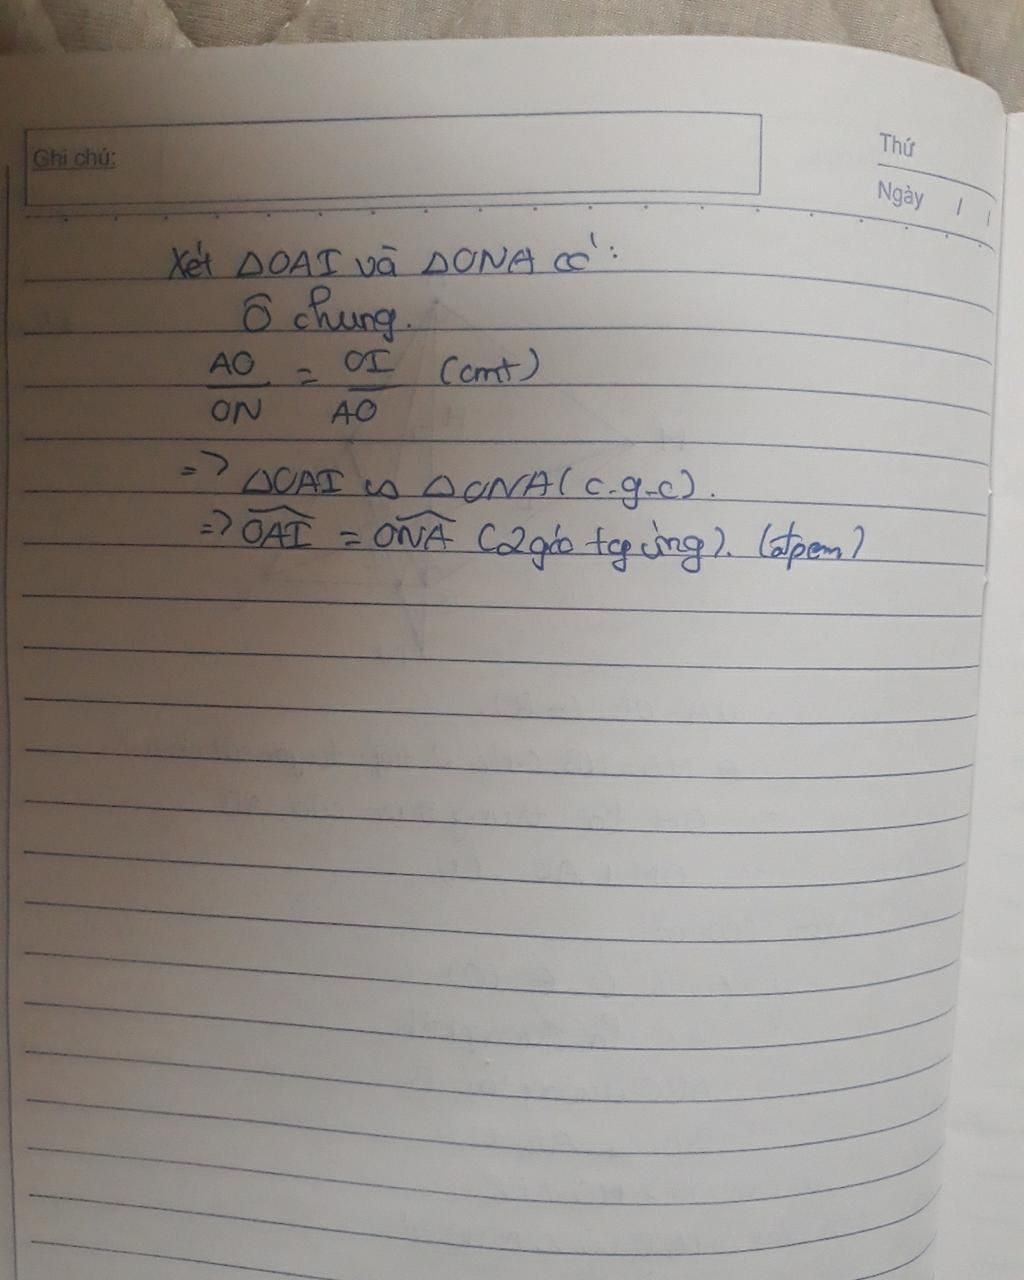 Ghi chú:
Thứ
Ngày / /
Xét ΔOAI và ΔONA có:
Ô chung.
AO/ON = OI/AO (cmt)
=> ΔOAI ∽ ΔONA (c-g-c).
=> \widehat{OAI} = \widehat{ONA} (2 góc tg ứng). (đpcm)